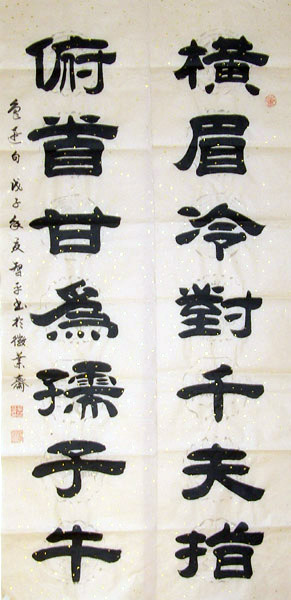 橫眉冷對千夫指
俯首甘為孺子牛
魯迅句戊子年夏智平書於徽業齋